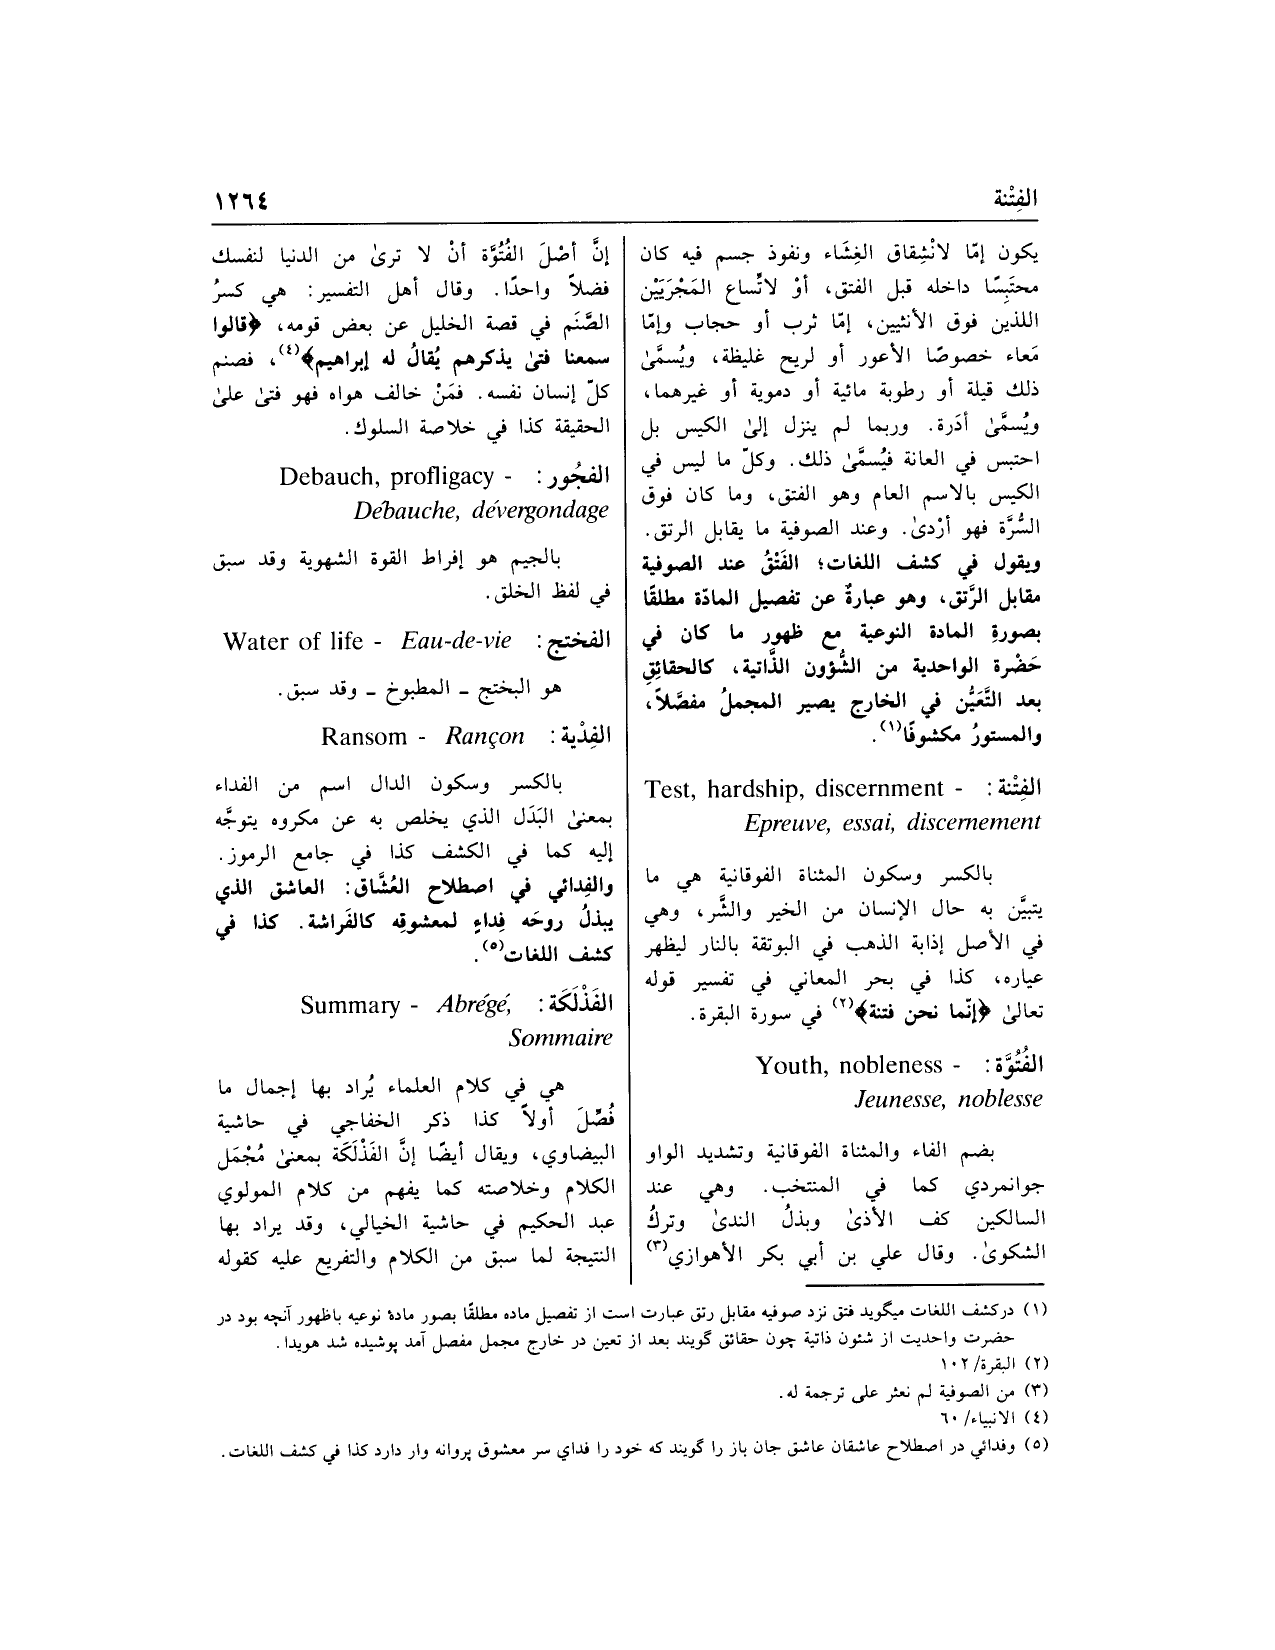 الفِتْنة
١٢٦٤
يكون إمّا لانْشِقاق الغِشَاء ونفوذ جسم فيه كان
محتَبِسًا داخله قبل الفتق، أوْ لاتِّساع المَجْرَيَيْن
اللذين فوق الأنثيين، إمّا ثرب أو حجاب وإمّا
مَعاء خصوصًا الأعور أو لريح غليظة، ويُسمَّىٰ
ذلك قيلة أو رطوبة مائية أو دموية أو غيرهما،
ويُسمَّىٰ أدَرة. وربما لم ينزل إلىٰ الكيس بل
احتبس في العانة فيُسمَّىٰ ذلك. وكلّ ما ليس في
الكيس بالاسم العام وهو الفتق، وما كان فوق
السُّرَّة فهو أرْدىٰ. وعند الصوفية ما يقابل الرتق.
ويقول في كشف اللغات؛ الفَتْقُ عند الصوفية
مقابل الرَّتق، وهو عبارةٌ عن تفصيل المادّة مطلقًا
بصورةِ المادة النوعية مع ظهور ما كان في
حَضْرة الواحدية من الشُّؤون الذَّاتية، كالحقائِقِ
بعد التَّعَيُّن في الخارج يصير المجملُ مفصَّلاً،
والمستورُ مكشوفًا(١).
الفِتْنة: - Test, hardship, discernment
Epreuve, essai, discernement
بالكسر وسكون المثناة الفوقانية هي ما
يتبيَّن به حال الإنسان من الخير والشَّر، وهي
في الأصل إذابة الذهب في البوتقة بالنار ليظهر
عياره، كذا في بحر المعاني في تفسير قوله
تعالىٰ ﴿إنّما نحن فتنة﴾(٢) في سورة البقرة.
الفُتُوَّة: - Youth, nobleness
Jeunesse, noblesse
بضم الفاء والمثناة الفوقانية وتشديد الواو
جوانمردي كما في المنتخب. وهي عند
السالكين كف الأذىٰ وبذلُ الندىٰ وتركُ
الشكوىٰ. وقال علي بن أبي بكر الأهوازي(٣)
إنَّ أصْلَ الفُتُوَّة أنْ لا ترىٰ من الدنيا لنفسك
فضلاً واحدًا. وقال أهل التفسير: هي كسرُ
الصَّنَم في قصة الخليل عن بعض قومه، ﴿قالوا
سمعنا فتىٰ يذكرهم يُقالُ له إبراهيم﴾(٤)، فصنم
كلّ إنسان نفسه. فمَنْ خالف هواه فهو فتىٰ علىٰ
الحقيقة كذا في خلاصة السلوك.
الفجُور: - Debauch, profligacy
Débauche, dévergondage
بالجيم هو إفراط القوة الشهوية وقد سبق
في لفظ الخلق.
الفختج: Water of life - Eau-de-vie
هو البختج ــ المطبوخ ــ وقد سبق.
الفِدْية: Ransom - Rançon
بالكسر وسكون الدال اسم من الفداء
بمعنىٰ البَدَل الذي يخلص به عن مكروه يتوجَّه
إليه كما في الكشف كذا في جامع الرموز.
والفِدائي في اصطلاح العُشَّاق: العاشق الذي
يبذلُ روحَه فِداءٍ لمعشوقِه كالفَراشة. كذا في
كشف اللغات(٥).
الفَذْلَكَة: Summary - Abrégé,
Sommaire
هي في كلام العلماء يُراد بها إجمال ما
فُصِّلَ أولاً كذا ذكر الخفاجي في حاشية
البيضاوي، ويقال أيضًا إنَّ الفَذْلَكَة بمعنىٰ مُجْمَل
الكلام وخلاصته كما يفهم من كلام المولوي
عبد الحكيم في حاشية الخيالي، وقد يراد بها
النتيجة لما سبق من الكلام والتفريع عليه كقوله
(١) دركشف اللغات ميگويد فتق نزد صوفيه مقابل رتق عبارت است از تفصيل ماده مطلقًا بصور مادۀ نوعيه باظهور آنچه بود در
حضرت واحديت از شئون ذاتية چون حقائق گويند بعد از تعين در خارج مجمل مفصل آمد پوشيده شد هويدا.
(٢) البقرة/ ١٠٢
(٣) من الصوفية لم نعثر على ترجمة له.
(٤) الانبياء/ ٦٠
(٥) وفدائي در اصطلاح عاشقان عاشق جان باز را گويند كه خود را فداي سر معشوق پروانه وار دارد كذا في كشف اللغات.